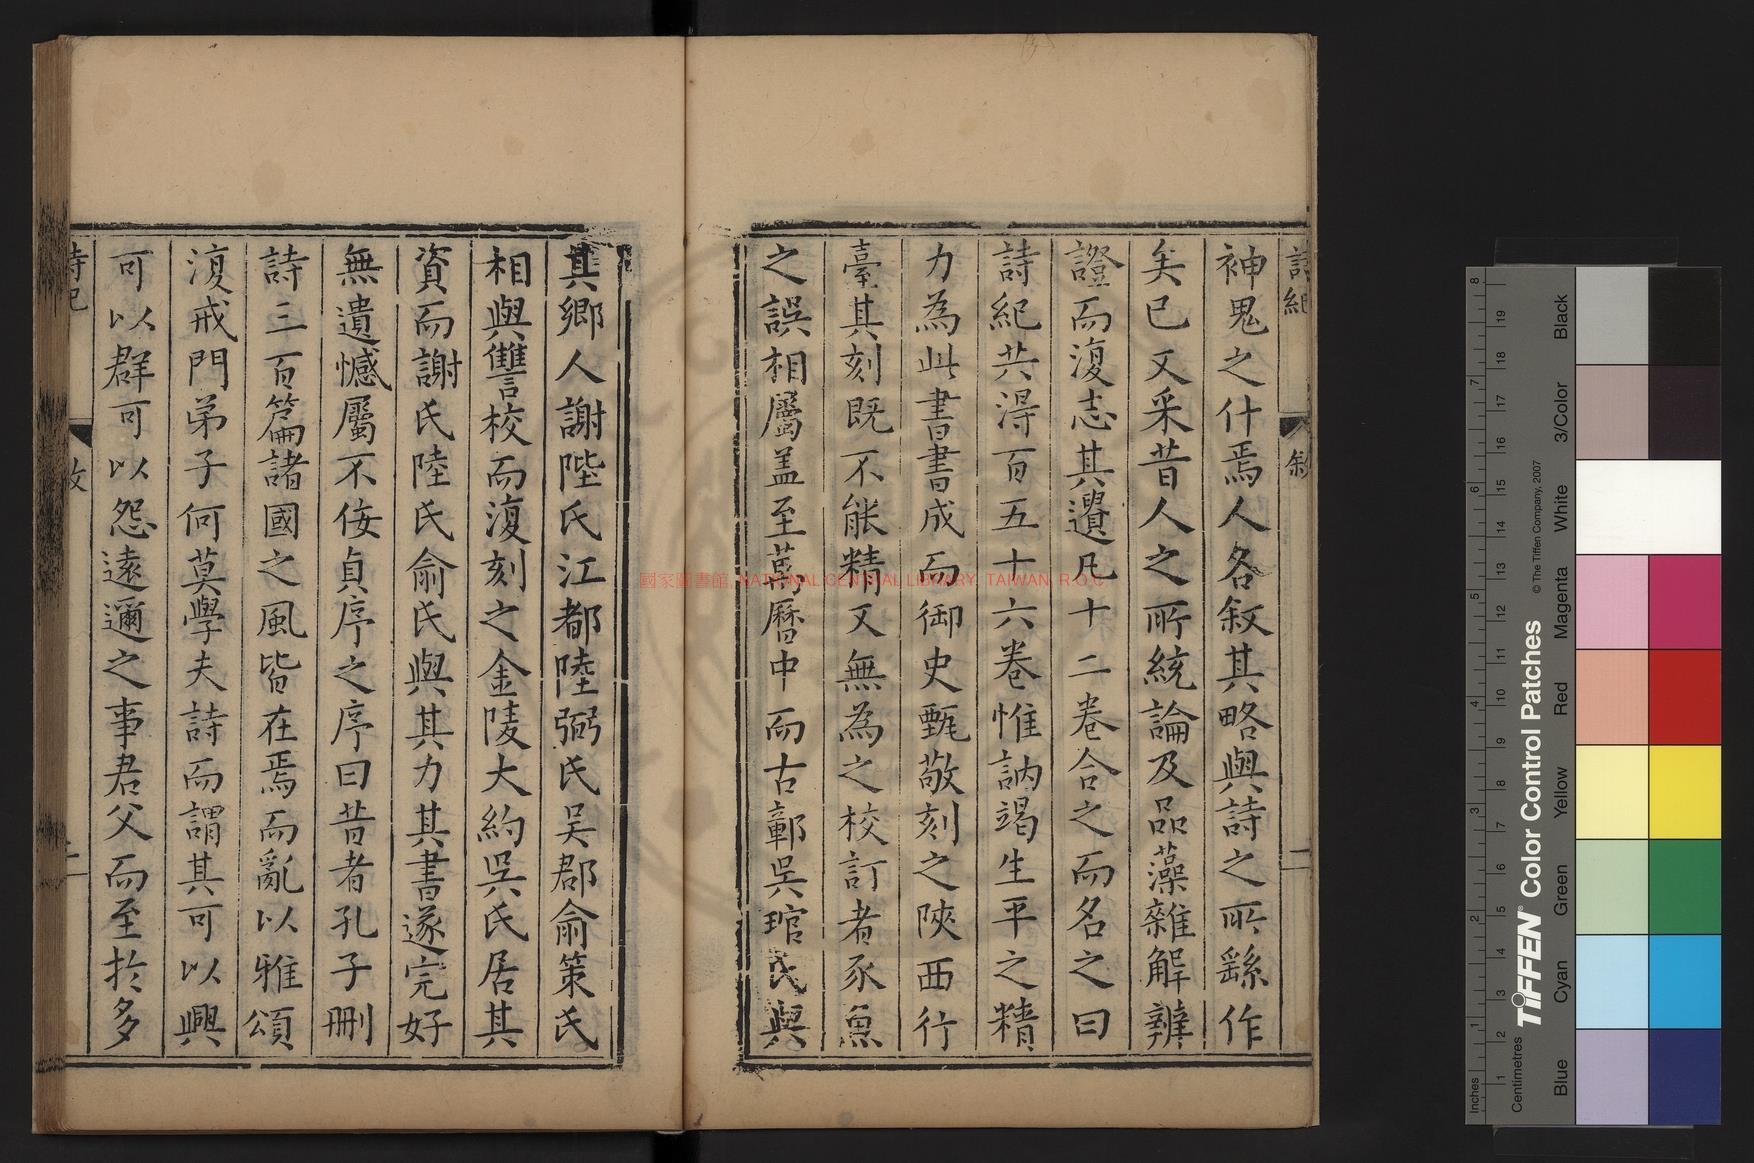 詩紀
敘
二
神鬼之什焉人各敘其略與詩之所繇作
矣已又采昔人之所統論及品藻雜解辨
證而復志其遺凡十二卷合之而名之曰
詩紀共得百五十六卷惟訥竭生平之精
力為此書書成而御史甄敬刻之陝西行
臺其刻既不能精又無為之校訂者豕魚
之誤相屬盖至萬曆中而古鄣吳琯氏與
其鄉人謝陛氏江都陸弼氏吳郡俞策氏
相與讐校而復刻之金陵大約吳氏居其
資而謝氏陸氏俞氏與其力其書遂完好
無遺憾屬不佞貞序之序曰昔者孔子刪
詩三百篇諸國之風皆在焉而亂以雅頌
復戒門弟子何莫學夫詩而謂其可以興
可以群可以怨遠邇之事君父而至於多
國家圖書館, NATIONAL CENTRAL LIBRARY, TAIWAN, R.O.C
TIFFEN® Color Control Patches
© The Tiffen Company, 2007
Inches
Centimetres
Blue
Cyan
Green
Yellow
Red
Magenta
White
3/Color
Black